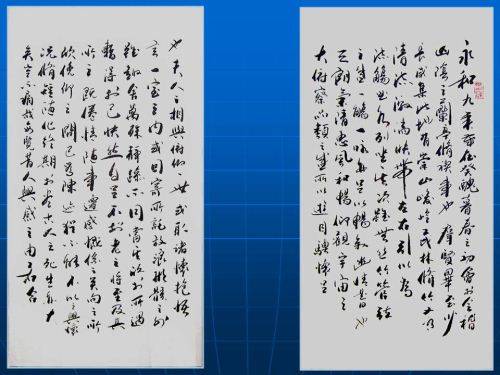 永和九年歲在癸醜暮春之初會於會稽
山陰之蘭亭脩禊事也羣賢畢至少
長咸集此地有崇山峻嶺茂林脩竹又有
清流激湍映帶左右引以為
流觴曲水列坐其次雖無絲竹管弦
之盛一觴一詠亦足以暢敘幽情是日也
天朗氣清惠風和暢仰觀宇宙之
大俯察品類之盛所以遊目騁懷足
也夫人之相與俯仰一世或取諸懷抱悟
言一室之內或因寄所託放浪形骸之外
雖趣舍萬殊靜躁不同當其欣於所遇
暫得於己快然自足不知老之將至及其
所之既倦情隨事遷感慨係之矣向之所
欣俛仰之間已為陳迹猶不能不以之興懷
況脩短隨化終期於盡古人云死生亦大
矣豈不痛哉每覽昔人興感之由若合